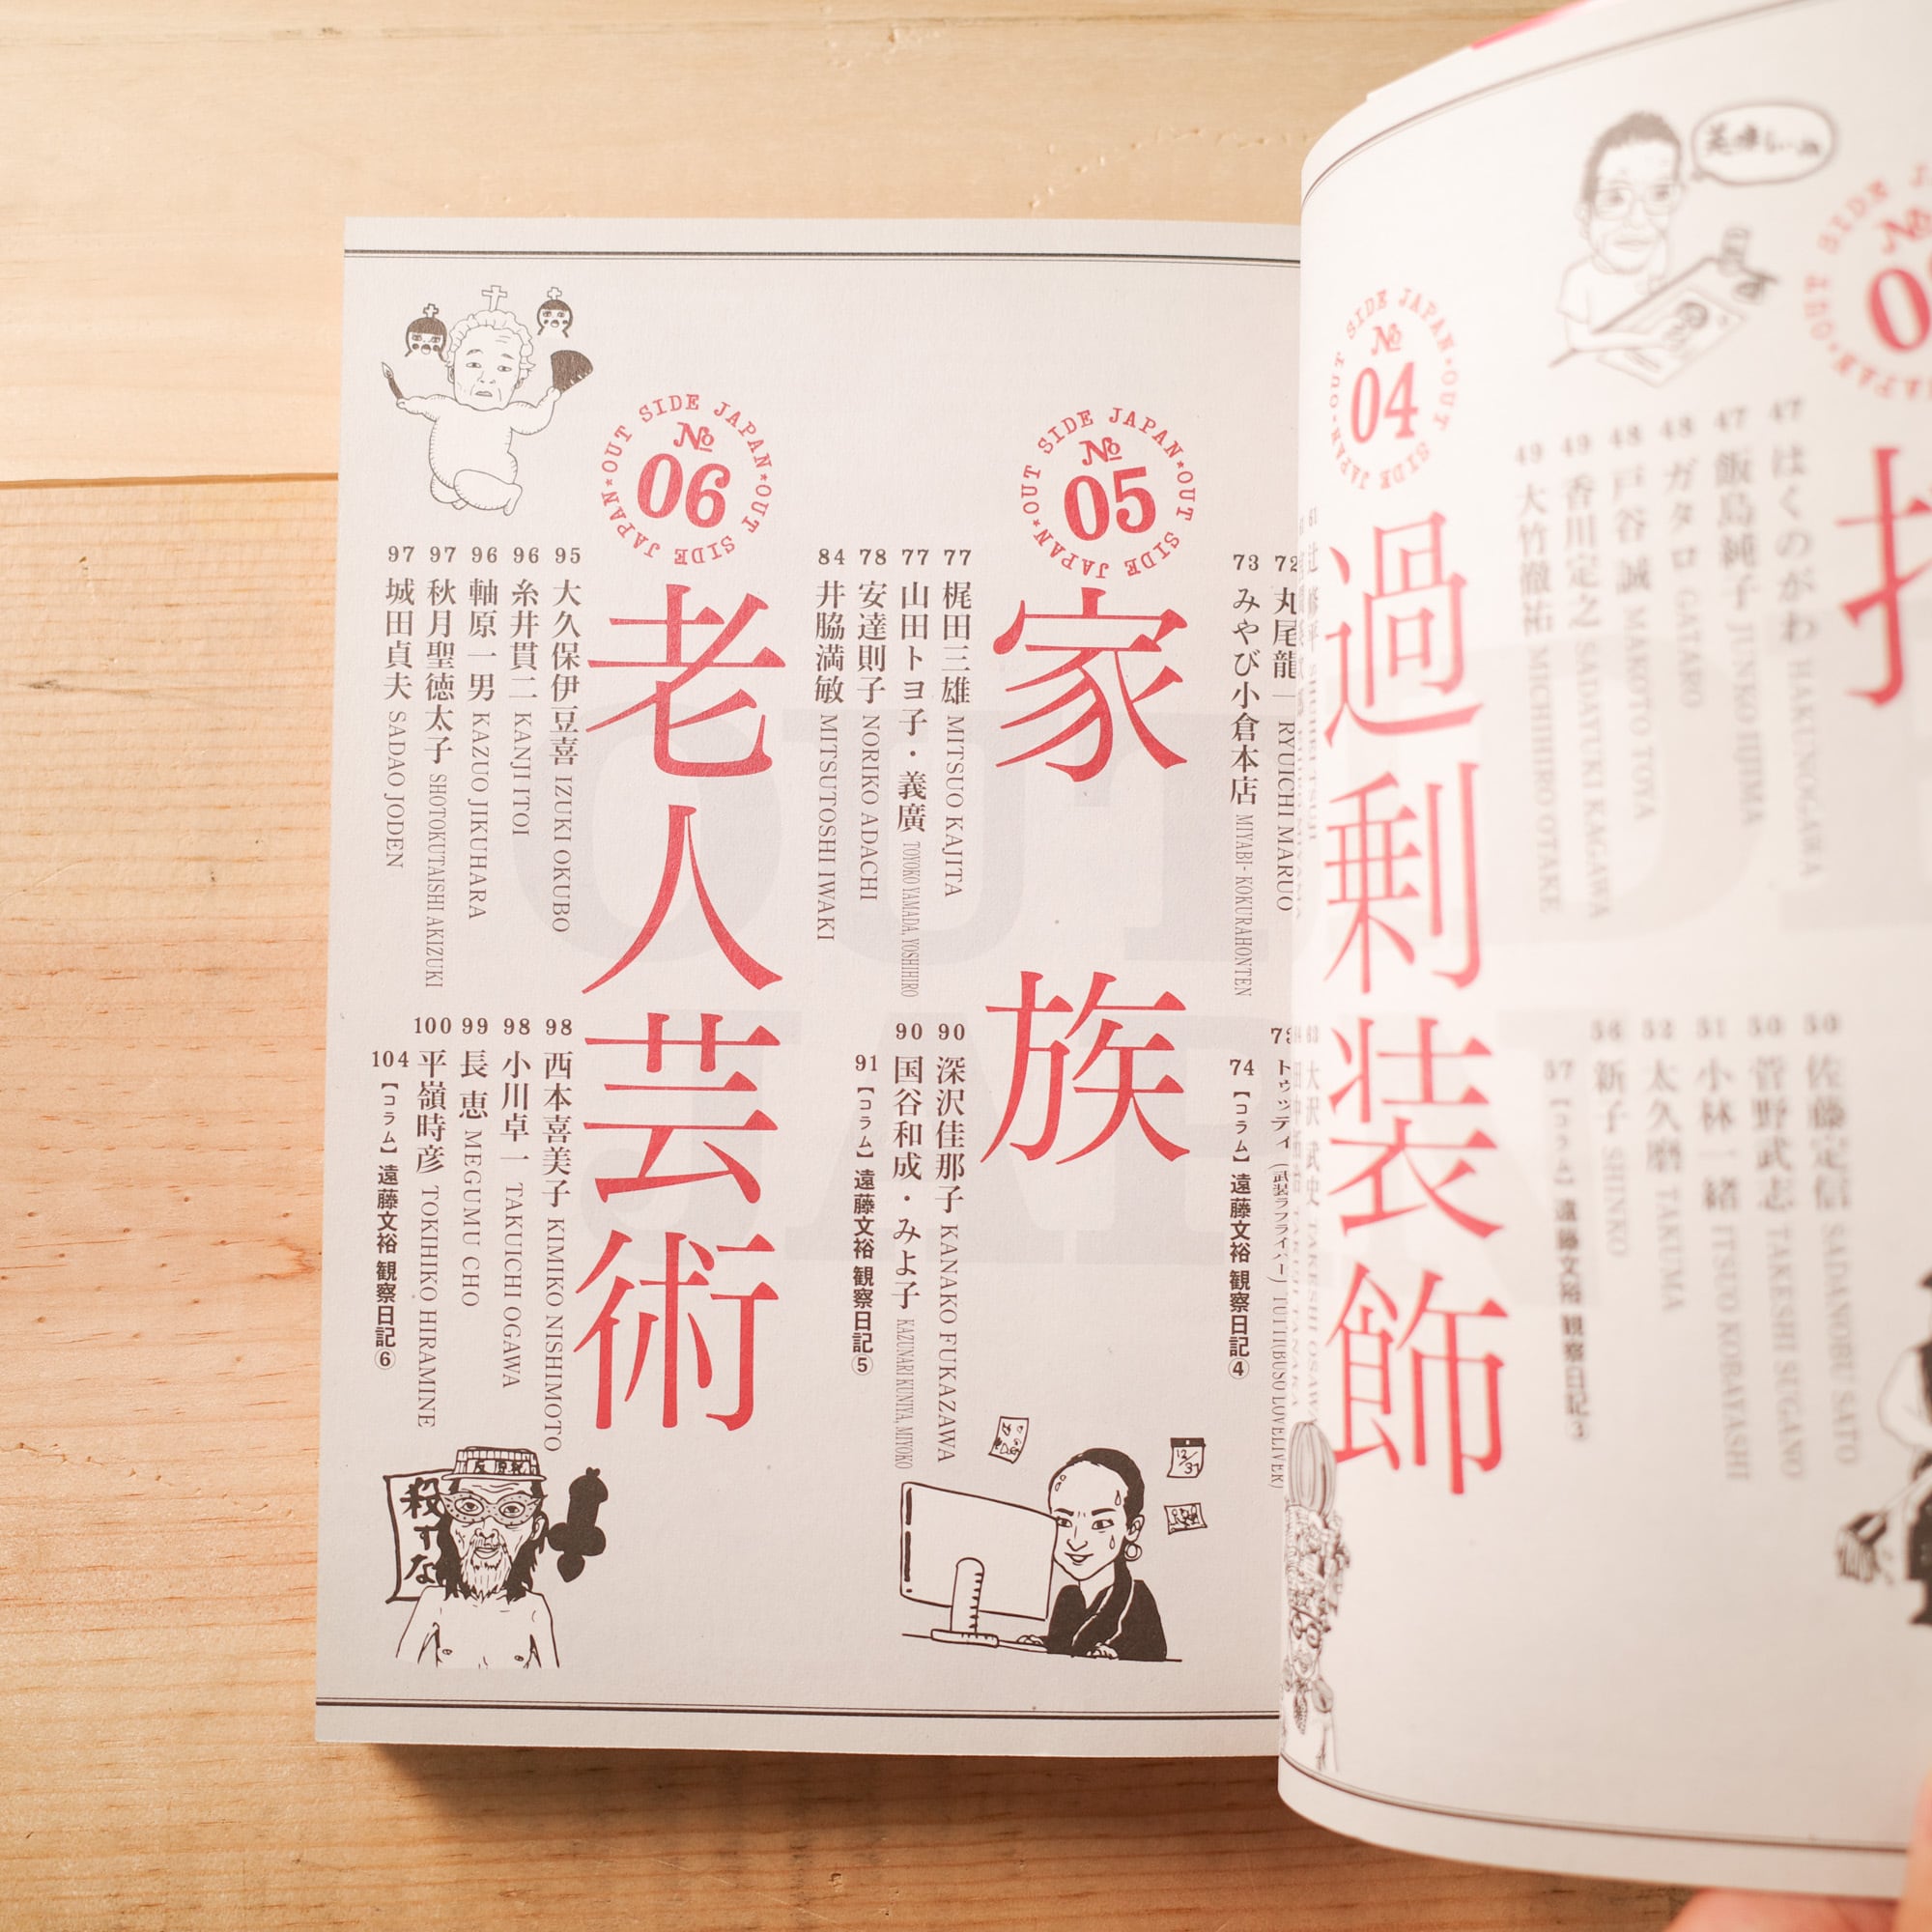 美味しいね
47 はくのがわ HAKUNOGAWA
47 飯島純子 JUNKO IIJIMA
48 ガタロ GATARO
48 戸谷誠 MAKOTO TOYA
49 香川定之 SADAYUKI KAGAWA
49 大竹徹祐 MICHIHIRO OTAKE
50 佐藤定信 SADANOBU SATO
50 菅野武志 TAKESHI SUGANO
51 小林一緒 ITSUO KOBAYASHI
52 太久磨 TAKUMA
56 新子 SHINKO
57 【コラム】 遠藤文裕 観察日記③
OUT SIDE JAPAN★OUT SIDE JAPAN★
№
04
過剰装飾
72 丸尾龍一 RYUICHI MARUO
73 みやび小倉本店 MIYABI-KOKURAHONTEN
トゥッティ(武装ラブライバー) TUTTI(BUSO LOVELIVER)
74 【コラム】 遠藤文裕 観察日記④
OUT SIDE JAPAN★OUT SIDE JAPAN★
№
05
家族
77 梶田三雄 MITSUO KAJITA
77 山田トヨ子・義廣 TOYOKO YAMADA, YOSHIHIRO
78 安達則子 NORIKO ADACHI
84 井脇満敏 MITSUTOSHI IWAKI
90 深沢佳那子 KANAKO FUKAZAWA
90 国谷和成・みよ子 KAZUNARI KUNIYA, MIYOKO
91 【コラム】 遠藤文裕 観察日記⑤
12/31
OUT SIDE JAPAN★OUT SIDE JAPAN★
№
06
老人芸術
95 大久保伊豆喜 IZUKI OKUBO
96 糸井貫二 KANJI ITOI
96 軸原一男 KAZUO JIKUHARA
97 秋月聖徳太子 SHOTOKUTAISHI AKIZUKI
97 城田貞夫 SADAO JODEN
98 西本喜美子 KIMIKO NISHIMOTO
98 小川卓一 TAKUICHI OGAWA
99 長恵 MEGUMU CHO
100 平嶺時彦 TOKIHIKO HIRAMINE
104 【コラム】 遠藤文裕 観察日記⑥
反原発
殺すな